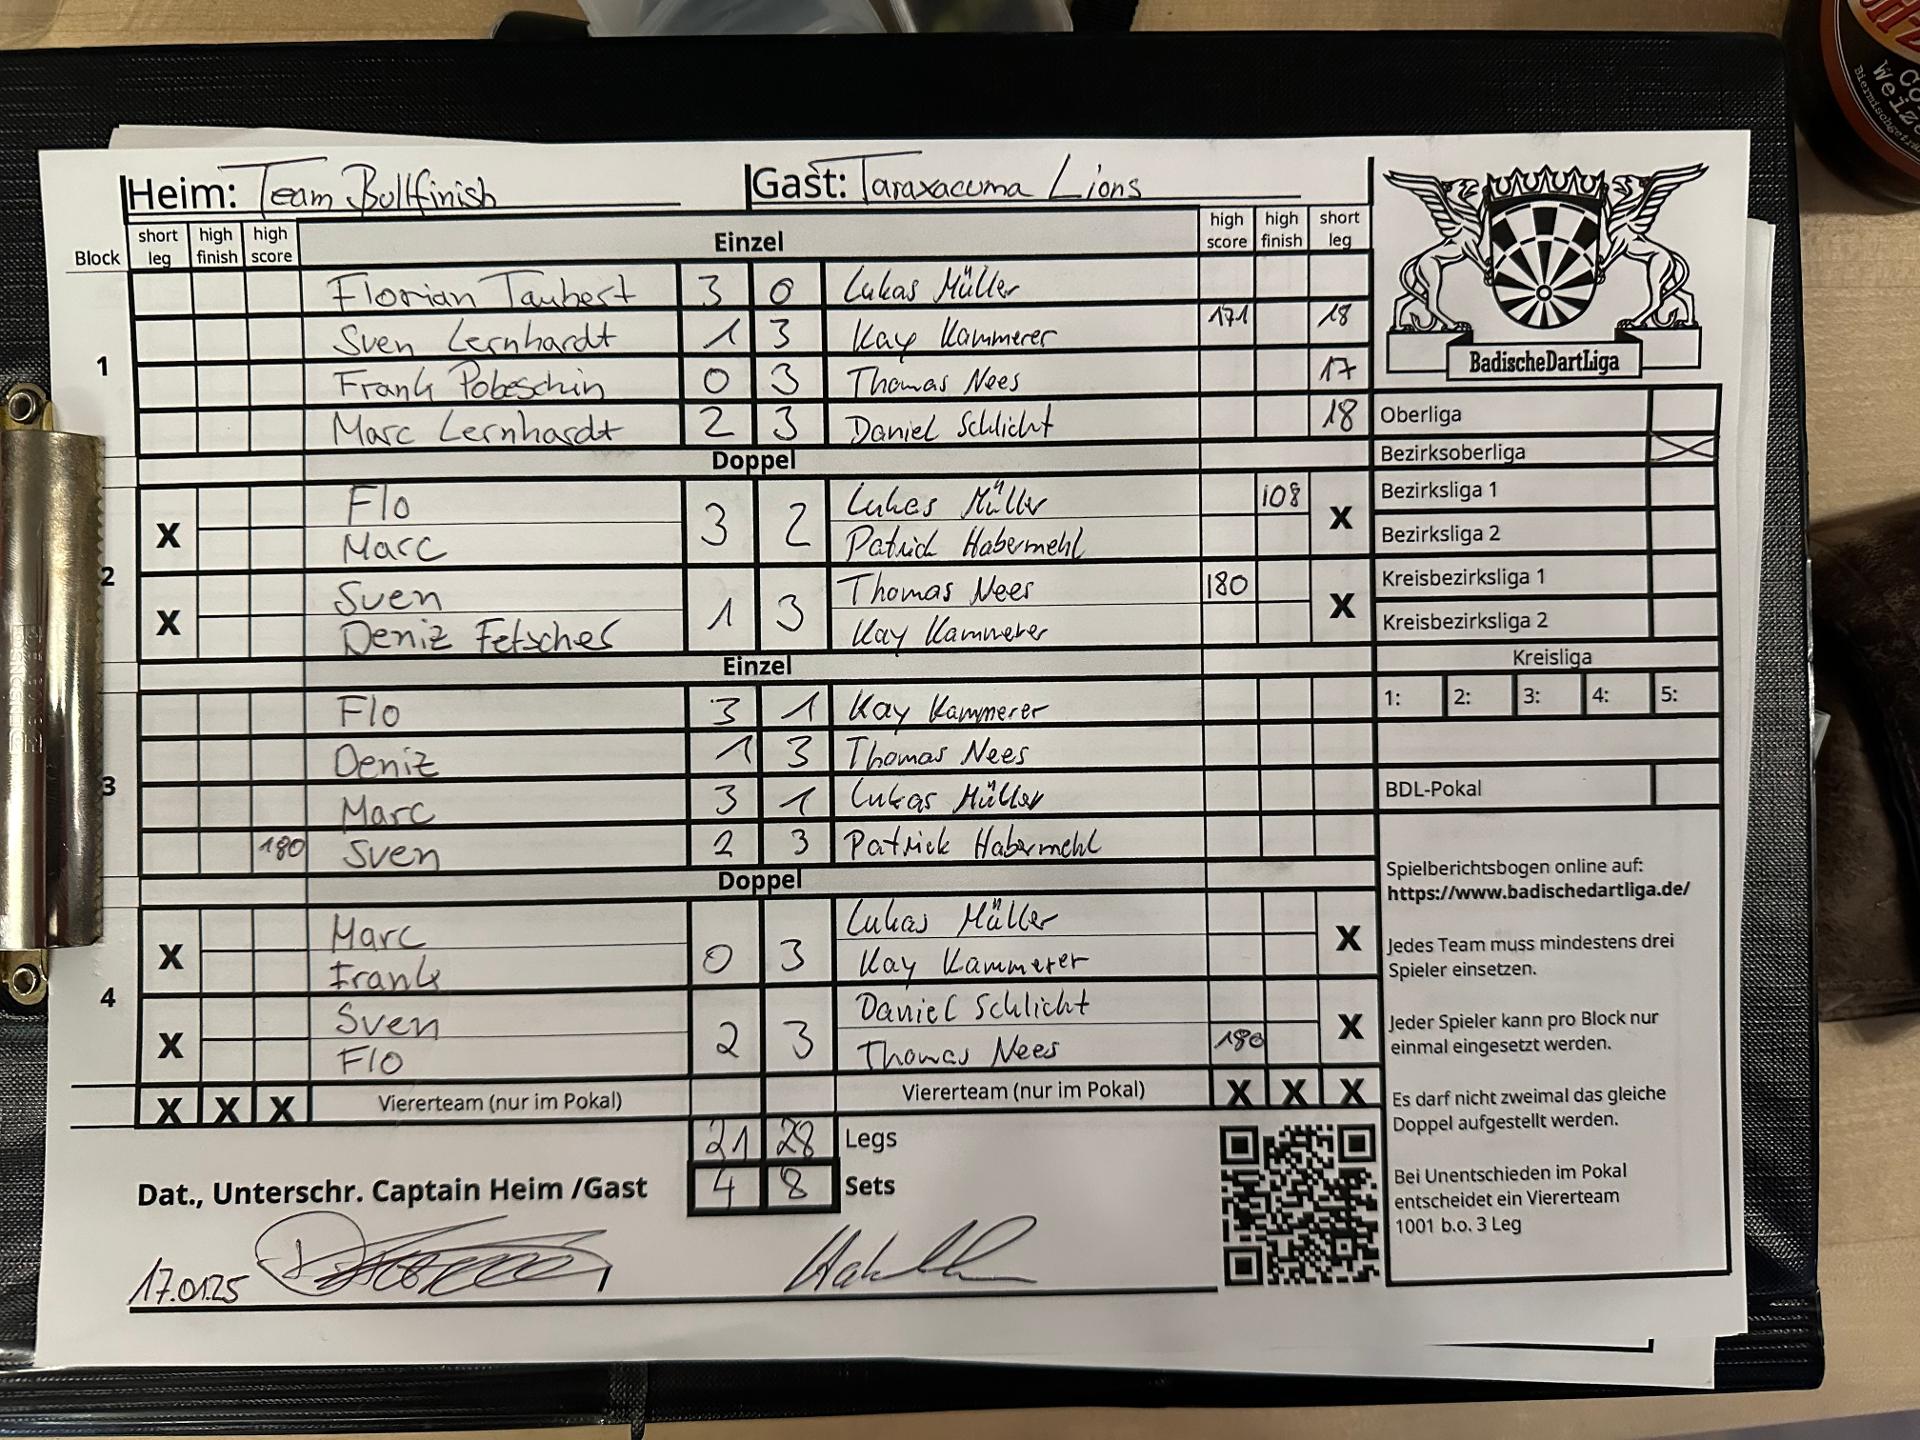 Heim: Team Bullfinish Gast: Taraxacuma Lions
Block short leg high finish high score Einzel high score high finish short leg
1
Florian Taubert 3 0 Lukas Müller
Sven Lernhardt 1 3 Kay Kammerer 171 18
Frank Pobeschin 0 3 Thomas Nees 17
Marc Lernhardt 2 3 Daniel Schlicht 18
Doppel
2
X Flo 3 2 Lukas Müller 108 X
Marc Patrick Habermehl
X Sven 1 3 Thomas Nees 180 X
Deniz Fetscher Kay Kammerer
Einzel
3
Flo 3 1 Kay Kammerer
Deniz 1 3 Thomas Nees
Marc 3 1 Lukas Müller
180 Sven 2 3 Patrick Habermehl
Doppel
4
X Marc 0 3 Lukas Müller X
Frank Kay Kammerer
X Sven 2 3 Daniel Schlicht X
Flo Thomas Nees 180
X X X Viererteam (nur im Pokal) Viererteam (nur im Pokal) X X X
21 28 Legs
4 8 Sets
Dat., Unterschr. Captain Heim /Gast
17.01.25
BadischeDartLiga
Oberliga
Bezirksoberliga X
Bezirksliga 1
Bezirksliga 2
Kreisbezirksliga 1
Kreisbezirksliga 2
Kreisliga
1: 2: 3: 4: 5:
BDL-Pokal
Spielberichtsbogen online auf:
https://www.badischedartliga.de/
Jedes Team muss mindestens drei
Spieler einsetzen.
Jeder Spieler kann pro Block nur
einmal eingesetzt werden.
Es darf nicht zweimal das gleiche
Doppel aufgestellt werden.
Bei Unentschieden im Pokal
entscheidet ein Viererteam
1001 b.o. 3 Leg